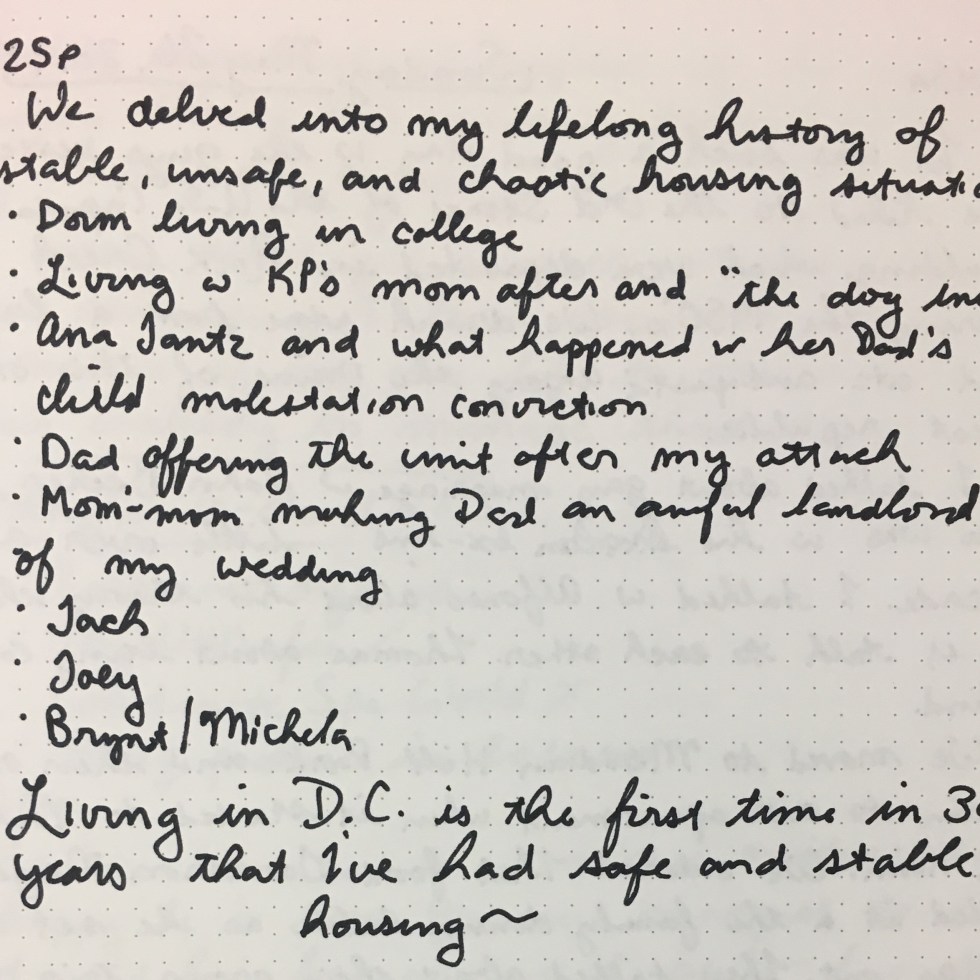 25p
We delved into my lifelong history of
stable, unsafe, and chaotic housing situati
· Dorm living in college
· Living w KP's mom after and "the dog in
· Ana Jantz and what happened w her Dad's
child molestation conviction
· Dad offering the unit after my attack
· Mom-mom making Dad an awful landlord
of my wedding
· Jack
· Joey
· Brynt/Michela
Living in D.C. is the first time in 3
years that I've had safe and stable
housing~